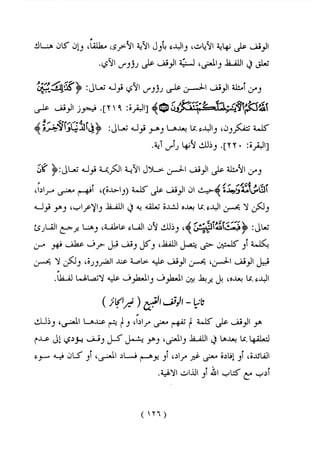 الوقف على نهاية الآيات، والبدء بأول الآية الأخرى مطلقا، وإن كان هناك
تعلق في اللفظ والمعنى، لسنّية الوقف على رؤوس الآي.
ومن أمثلة الوقف الحسن على رؤوس الآي قوله تعالى: ﴿كَذَٰلِكَ يُبَيِّنُ
اللَّهُ لَكُمُ الْآيَاتِ لَعَلَّكُمْ تَتَفَكَّرُونَ﴾ [البقرة: ٢١٩]. فيجوز الوقف على
كلمة تتفكرون، والبدء بما بعدها وهو قوله تعالى: ﴿فِي الدُّنْيَا وَالْآخِرَةِ﴾
[البقرة: ٢٢٠]. وذلك لأنها رأس آية.
ومن الأمثلة على الوقف الحسن خلال الآية الكريمة قوله تعالى: ﴿كَانَ
النَّاسُ أُمَّةً وَاحِدَةً﴾ حيث إن الوقف على كلمة (واحدة)، أفهم معنى مرادا،
ولكن لا يحسن البدء بما بعده لشدة تعلقه به في اللفظ والإعراب، وهو قوله
تعالى: ﴿فَبَعَثَ اللَّهُ النَّبِيِّينَ﴾، وذلك لأن الفاء عاطفة، وهنا يرجع القارئ
بكلمة أو كلمتين حتى يتصل اللفظ، وكل وقف قبل حرف عطف فهو من
قبيل الوقف الحسن، يحسن الوقف عليه خاصة عند الضرورة، ولا يحسن
البدء بما بعده، بل يربط بين الموقوف والموقوف عليه لاتصالهما لفظا.
ثانيا - الوقف القبيح ( غير الجائز )
هو الوقف على كلمة لم تفهم معنى مرادا، ولم يتم عندها المعنى، وذلك
لتعلقها بما بعدها في اللفظ والمعنى، وهو يشمل كل وقف يؤدي إلى عدم
الفائدة، أو إفادة معنى غير مراد، أو يوهم فساد المعنى، أو كان فيه سوء
أدب مع كتاب الله أو الذات الإلهية.
( ١٢٦ )